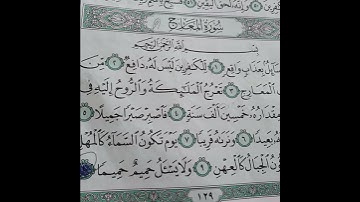 سُورَةُ المَعَارِجِ
بِسْمِ اللَّهِ الرَّحْمَٰنِ الرَّحِيمِ
بِعَذَابٍ وَاقِعٍ ١ لِلْكَافِرِينَ لَيْسَ لَهُ دَافِعٌ ٢ مِنَ
الْمَعَارِجِ ٣ تَعْرُجُ الْمَلَائِكَةُ وَالرُّوحُ إِلَيْهِ فِي
مِقْدَارُهُ خَمْسِينَ أَلْفَ سَنَةٍ ٤ فَاصْبِرْ صَبْرًا جَمِيلًا ٥
بَعِيدًا ٦ وَنَرَاهُ قَرِيبًا ٧ يَوْمَ تَكُونُ السَّمَاءُ كَالْمُهْلِ
الْجِبَالُ كَالْعِهْنِ ٩ وَلَا يَسْأَلُ حَمِيمٌ حَمِيمًا
١٢٩